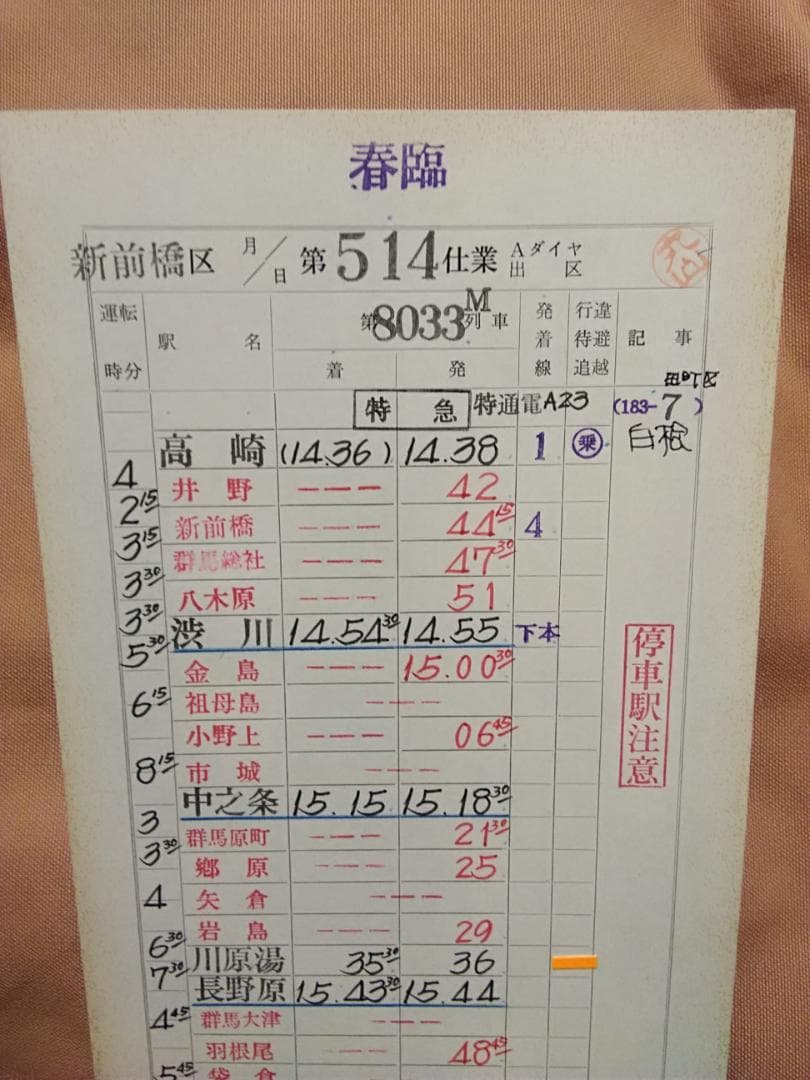 春臨
新前橋区 月/日 第514仕業 Aダイヤ出区
運転時分 駅名 第8033M列車 着 発 発着線 行違待避追越 記事
特急 特通電A23 (183-7) 白根
高崎 (14.36) 14.38 1 乗
4
井野 --- 42
2 15
新前橋 --- 44 15 4
3 15
群馬総社 --- 47 30
3 30
八木原 --- 51
3 30
渋川 14.54 30 14.55 下本
5 30
金島 --- 15.00 30
停車駅注意
6 15
祖母島 ---
小野上 --- 06 45
8 15
市城 ---
中之条 15.15 15.18 30
3
群馬原町 --- 21 30
3 30
郷原 --- 25
4
矢倉 ---
岩島 --- 29
6 30
川原湯 35 30 36
7 30
長野原 15.43 30 15.44
4 45
群馬大津 ---
羽根尾 --- 48 45
5 45
袋倉